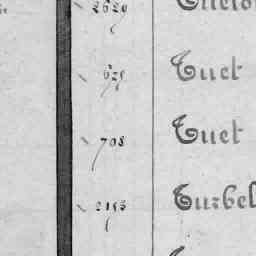 2629
625 Tuet
708 Tuet
2193 Turbel